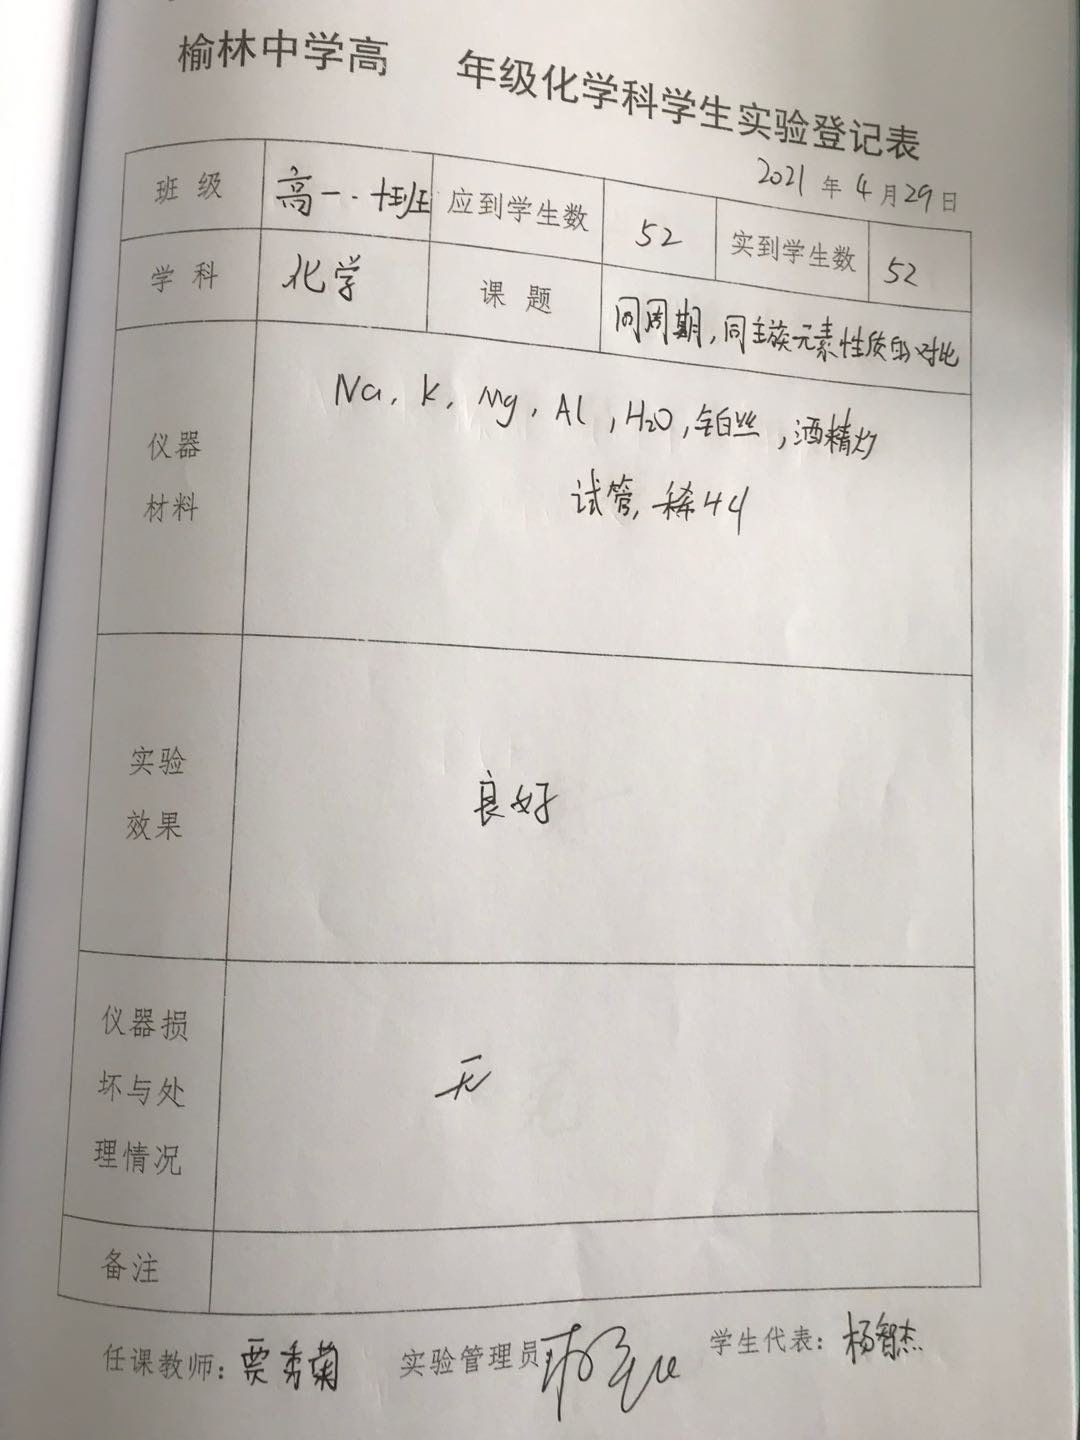 榆林中学高 年级化学科学生实验登记表
2021 年 4 月 29 日
班 级 高一.十班 应到学生数 52 实到学生数 52
学 科 化学 课 题 同周期,同主族元素性质的对比
仪器
材料
Na, K, Mg, Al, H2O, 铂丝, 酒精灯
试管, 稀HCl
实验
效果
良好
仪器损
坏与处
理情况
无
备注
任课教师: 贾秀菊 实验管理员 学生代表: 杨智杰